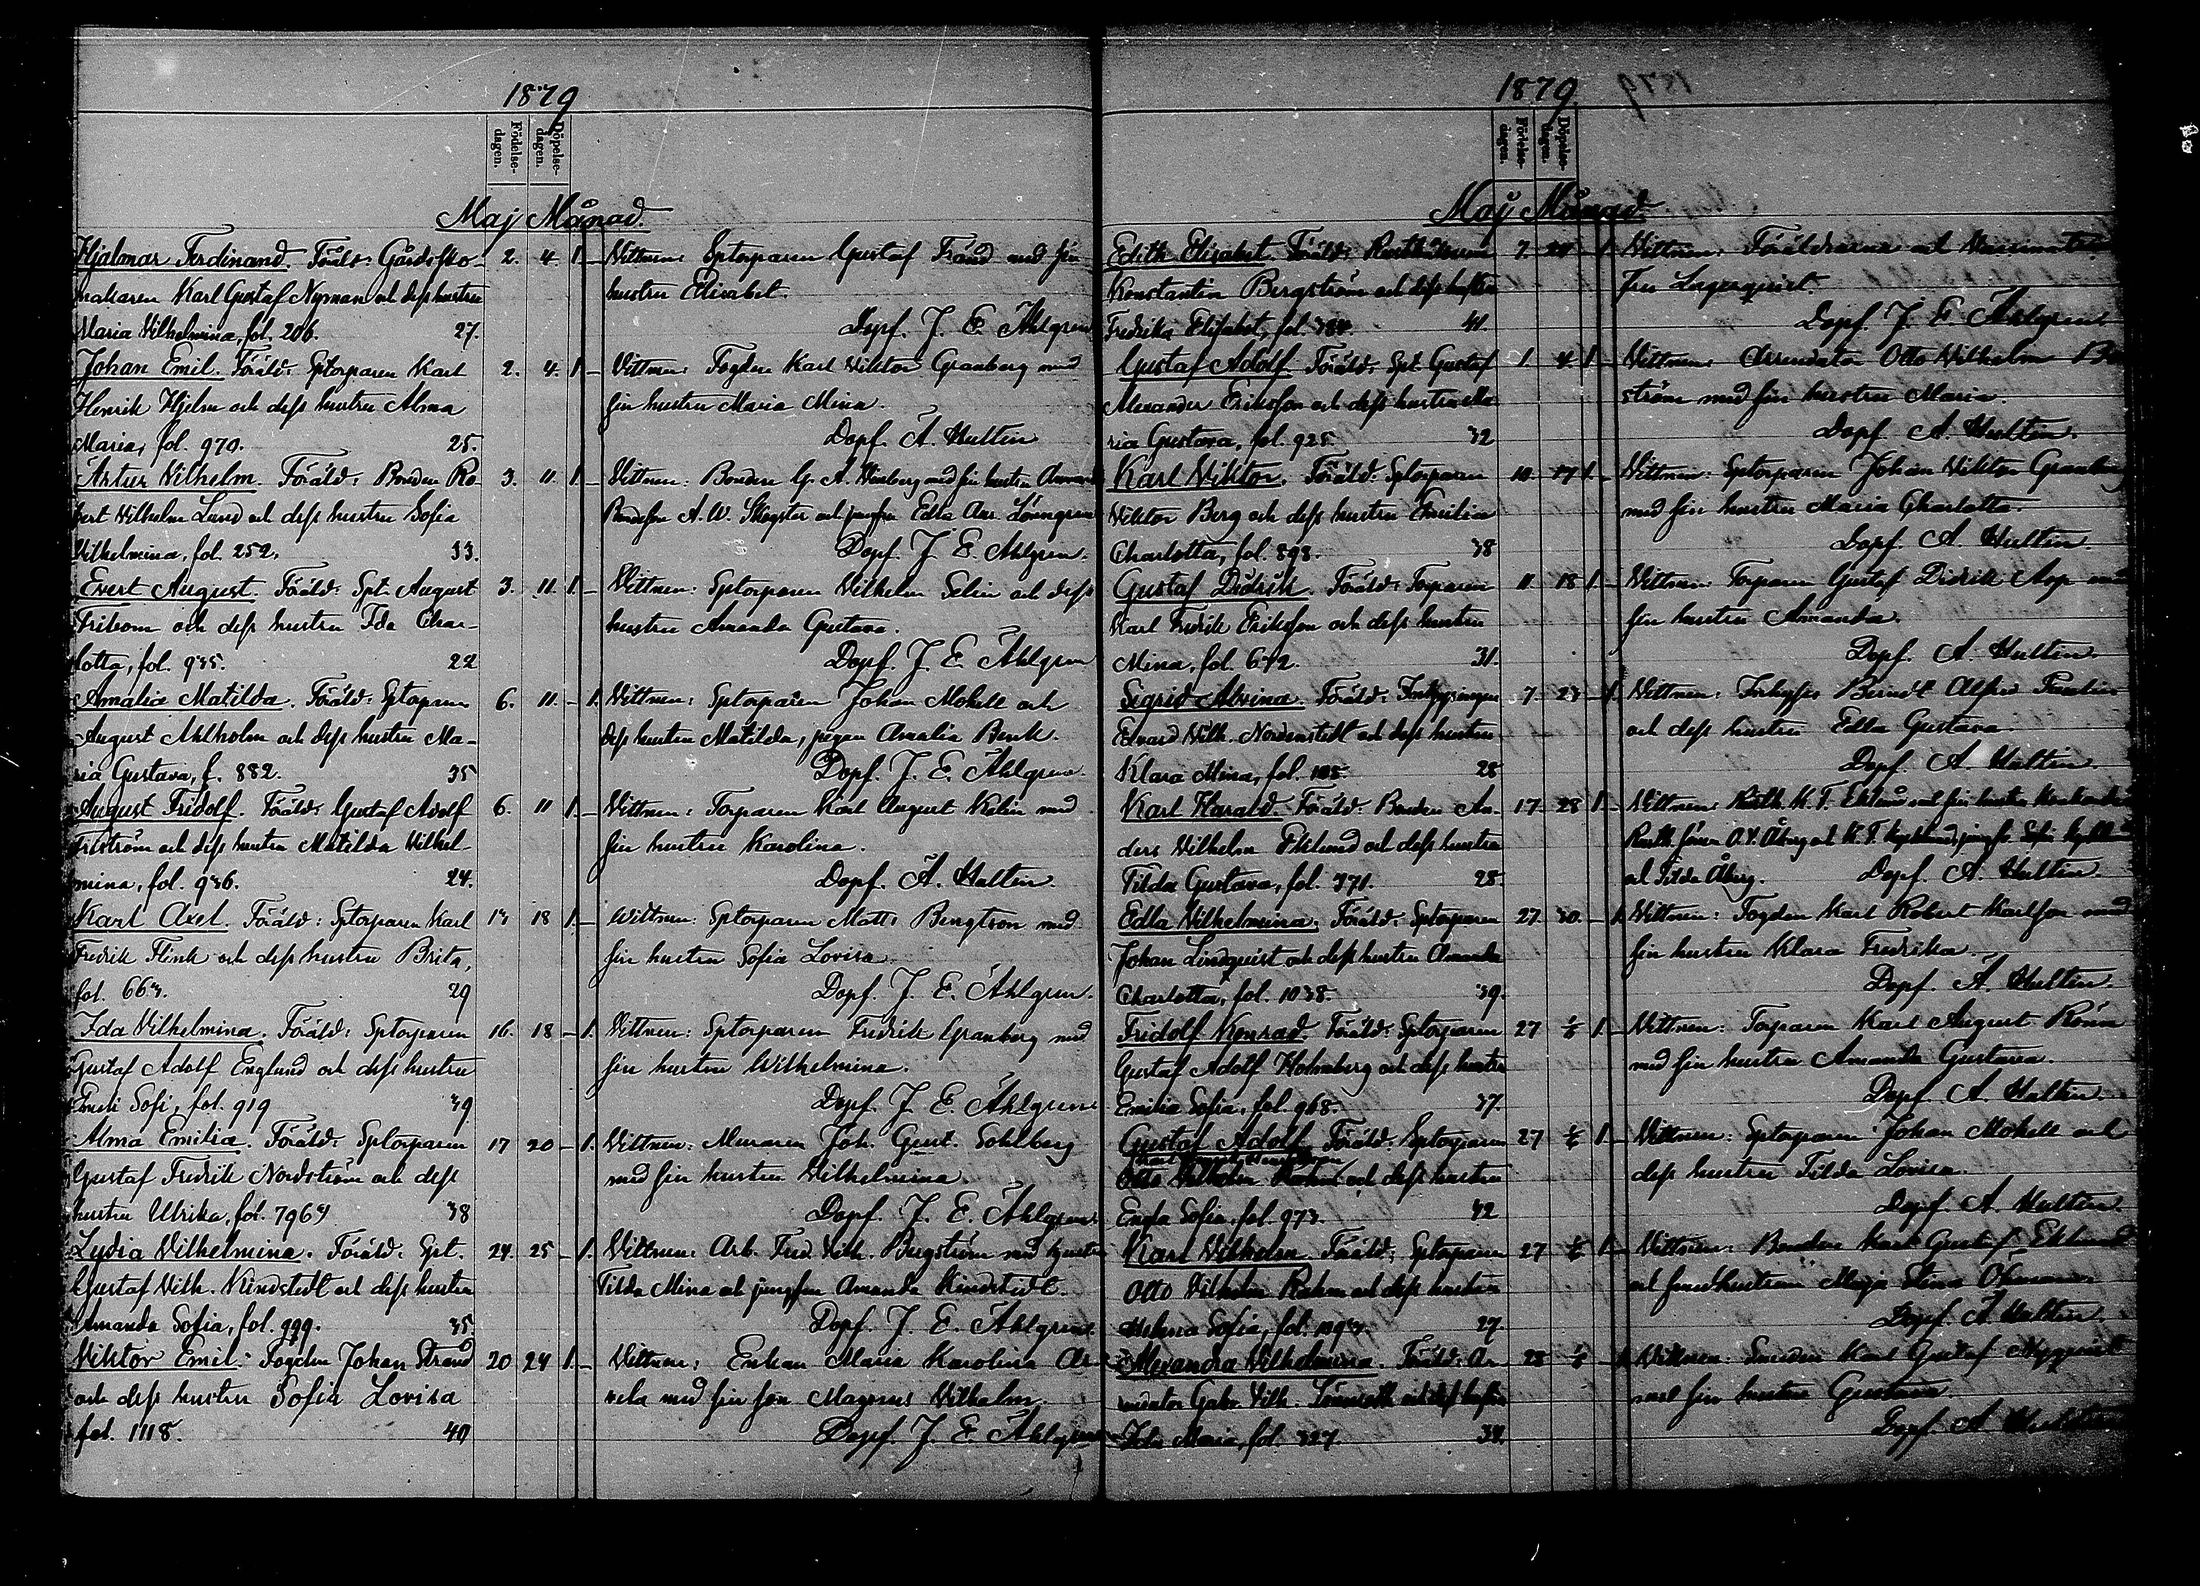 1879
Födelse-dagen. Döpelse-dagen.
Maj Månad.
Hjalmar Ferdinand. Föräld: Gårdssko- 2. 4. 1. –
makaren Karl Gustaf Nyman och dess hustru
Maria Vilhelmina, fol. 206. 27.
Vittnen: Sptorparen Gustaf Fränd med sin
hustru Elisabet.
Dopf. J. E. Åhlgren
Johan Emil. Föräld: Sptorparen Karl 2. 4. 1. –
Henrik Hjelm och dess hustru Alma
Maria, fol. 970. 25.
Vittnen: Fogden Karl Viktor Granberg med
sin hustru Maria Mina.
Dopf. A. Hultin
Artur Vilhelm. Föräld: Bonden Ro- 3. 11. 1. –
bert Vilhelm Lund och dess hustru Sofia
Vilhelmina, fol. 252. 33.
Vittnen: Bonden G. A. med sin hustru
A. W. Skogster och jungfru Edla Lönngren
Dopf. J. E. Åhlgren.
Evert August. Föräld: Spt. August 3. 11. 1. –
Fritrom och dess hustru Ida Char-
lotta, fol. 935. 22
Vittnen: Sptorparen Vilhelm Selin och dess
hustru Amanda Gustava.
Dopf. J. E. Åhlgren
Amalia Matilda. Föräld: Sptorparen 6. 11. – 1.
August Ahlholm och dess hustru Ma-
ria Gustava, f. 882. 35
Vittnen: Sptorparen Johan Mokell och
dess hustru Matilda, pigan Amalia Benk.
Dopf. J. E. Åhlgren.
August Fridolf. Föräld: Gustaf Adolf 6. 11 1. –
Friström och dess hustru Matilda Vilhel-
mina, fol. 936. 24.
Vittnen: Torparen Karl August Kalin med
sin hustru Karolina.
Dopf. A. Hultin.
Karl Axel. Föräld: Sptorparen Karl 18 1. –
Fredrik Flink och dess hustru Brita,
fol. 663. 29
Vittnen: Sptorparen Matts Bengtson med
sin hustru Sofia Lovisa.
Dopf. J. E. Åhlgren.
Ida Vilhelmina. Föräld: Sptorparen 16. 18 – 1.
Gustaf Adolf Englund och dess hustru
Emeli Sofi, fol. 919 39
Vittnen: Sptorparen Fredrik Granberg med
sin hustru Wilhelmina.
Dopf. J. E. Åhlgren
Alma Emilia. Föräld: Sptorparen 17 20 – 1.
Gustaf Fredrik Nordström och dess
hustru Ulrika, fol. 38
Vittnen: Muraren Joh. Gust. Sohlberg
med sin hustru Vilhelmina
Dopf. J. E. Åhlgren
Lydia Vilhelmina. Föräld: Spt. 24. 25 – 1.
Gustaf Vilh. Kindstedt och dess hustru
Amanda Sofia, fol. 999. 35
Vittnen: Arb. Fred. Vilh. Bergström med hustru
Tilda Mina och jungfrun Amanda Kindstedt.
Dopf. J. E. Åhlgren
Viktor Emil. Fogden Johan Strand 20 24 1. –
och dess hustru Sofia Lovisa
fol. 1118. 40
Vittnen: Enkan Maria Karolina Ar-
vela med sin son Magnus Vilhelm
Dopf. J. E. Åhlgren
1879
Födelse-dagen. Döpelse-dagen.
Maj Månad.
Edith Elisabet. Föräld: 7. – 1.
Konstantin Bergström och dess hustru
Fredrika Elisabet, fol. 41.
Vittnen: Föräldrarna och
Fru Lagerqvist.
Dopf. J. E. Åhlgren
Gustaf Adolf. Föräld: Spt. Gustaf 1. 4. 1. –
Alexander Eriksson och dess hustru Ma-
ria Gustava, fol. 925. 32
Vittnen: Arrendator Otto Vilhelm
ström med sin hustru Maria.
Dopf. A. Hultin.
Karl Viktor. Föräld: Sptorparen 10. 17 1. –
Viktor Berg och dess hustru Emilia
Charlotta, fol. 893. 38
Vittnen: Sptorparen Johan Viktor Granberg
med sin hustru Maria Charlotta.
Dopf. A. Hultin.
Gustaf Didrik. Föräld: Torparen 11. 18 1. –
Karl Fredrik Eriksson och dess hustru
Mina, fol. 672. 31.
Vittnen: Torparen Gustaf Didrik Asp med
sin hustru Amanda.
Dopf. A. Hultin.
Sigrid Alvina. Föräld: 7. 23 – 1.
Edvard Vilh. Nordenstedt och dess hustru
Klara Mina, fol. 28
Vittnen: Berndt Alfred
och dess hustru Edla Gustava.
Dopf. A. Hultin.
Karl Harald. Föräld: Bonden An- 17 28 1. –
ders Vilhelm Eklund och dess hustru
Tilda Gustava, fol. 371. 28.
Vittnen: K. F. Eklund med sin hustru
och Tilda Åberg. Dopf. A. Hultin.
Edla Vilhelmina. Föräld: Sptorparen 27 30. – 1.
Johan Lindquist och dess hustru Amanda
Charlotta, fol. 1038. 39.
Vittnen: Fogden Karl Robert Karlsson med
sin hustru Klara Fredrika.
Dopf. A. Hultin.
Fridolf Konrad. Föräld: Sptorparen 27 1/6 1. –
Gustaf Adolf Holmberg och dess hustru
Emilia Sofia, fol. 968. 37.
Vittnen: Torparen Karl August
med sin hustru Amanda Gustava.
Dopf. A. Hultin.
Gustaf Adolf. Föräld: Sptorparen 27 1/6 1. –
och dess hustru
Engla Sofia, fol. 973. 42
Vittnen: Sptorparen Johan Mokell och
dess hustru Tilda Lovisa.
Dopf. A. Hultin.
Karl Vilhelm. Föräld: Sptorparen 27 1/6 1. –
Otto Vilhelm Rahm och dess hustru
Helena Sofia, fol. 27.
Vittnen: Bonden Karl Gustaf Eklund
och Maja Stina Öhman.
Dopf. A. Hultin.
Alexandra Vilhelmina. Föräld: Ar- 28 – 1.
rendator Gabr. Vilh. och dess hustru
Maria, fol. 327.
Vittnen: Smeden Karl Gustaf Nyqvist
med sin hustru Gustava
Dopf. A. Hultin